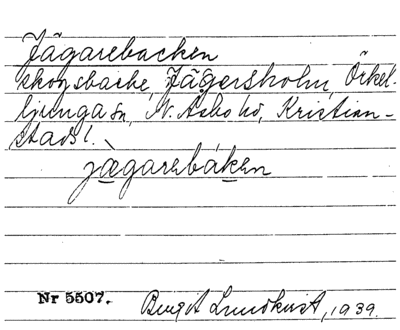 Jägarebacken
skogsbacke, Jägersholm, Örkel-
ljunga sn, N. Åsbo hd, Kristian-
stads l.
jægarebáken
Nr 5507.
Bengt Lundkvist, 1939.